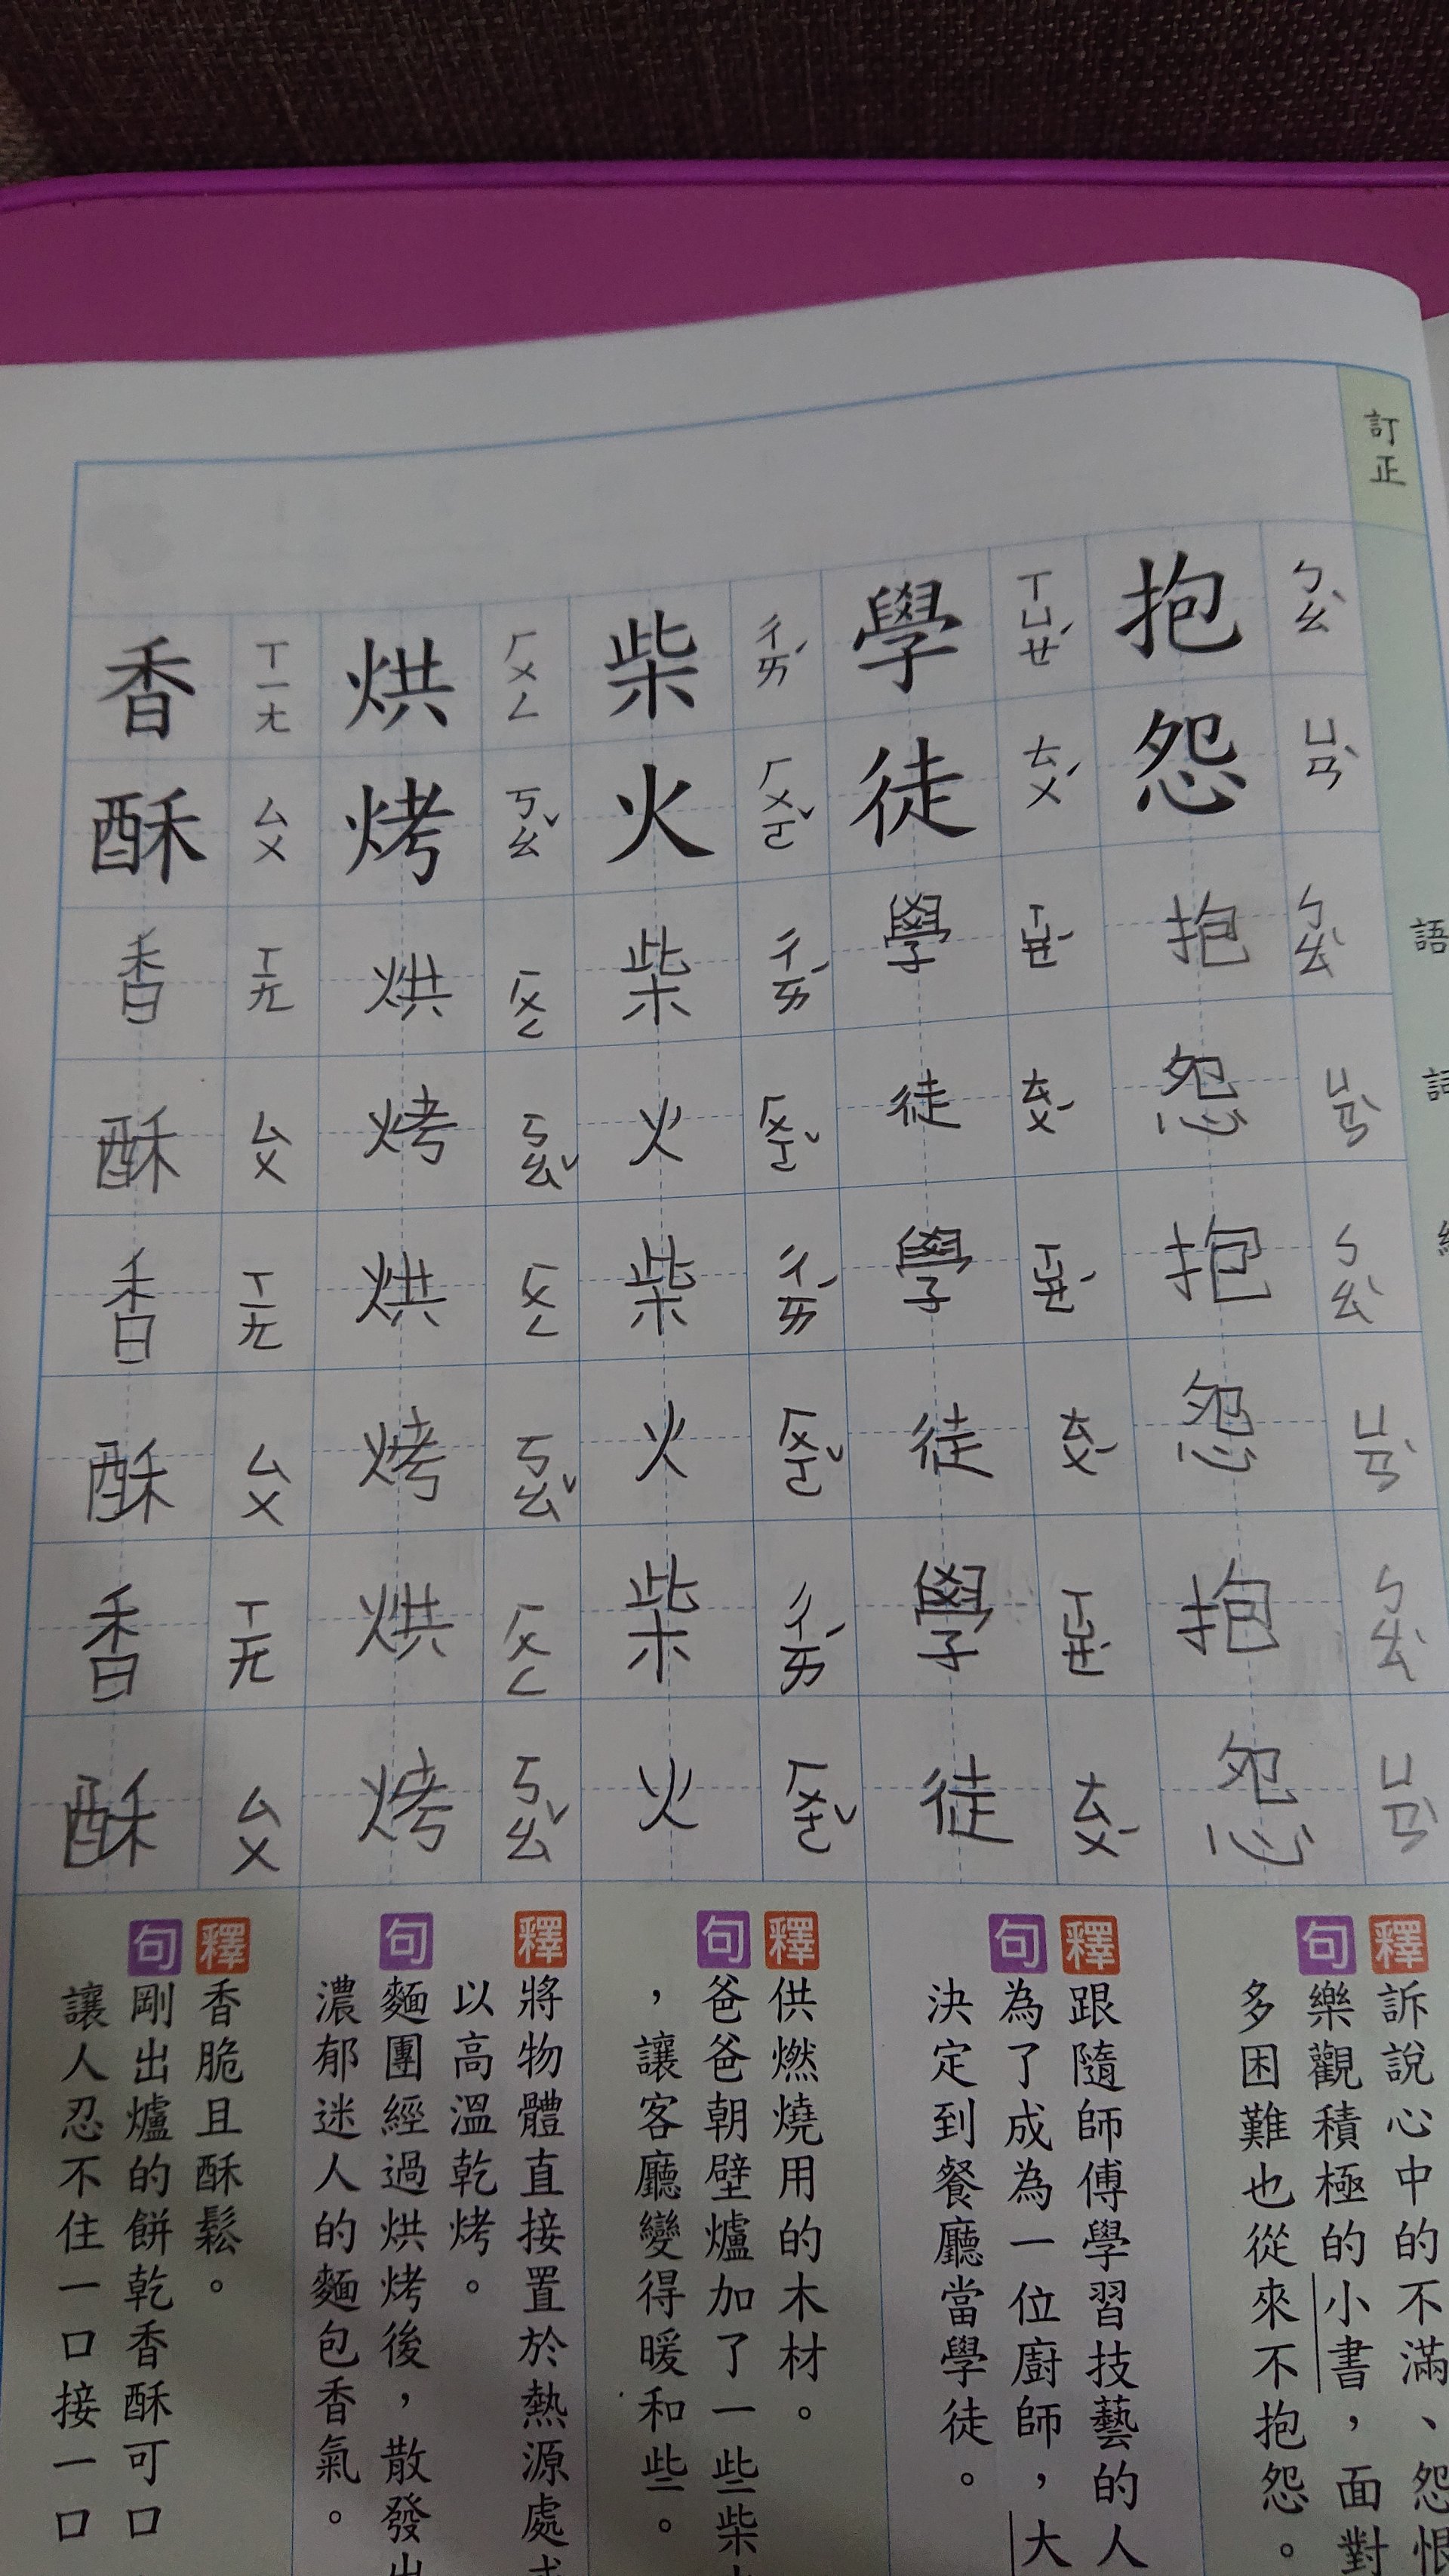 訂正
語
ㄅㄠˋ ㄩㄢˋ ㄅㄠˋ ㄩㄢˋ ㄅㄠˋ ㄩㄢˋ ㄅㄠˋ ㄩㄢˋ
抱怨抱怨抱怨抱怨
ㄒㄩㄝˊ ㄊㄨˊ ㄒㄩㄝˊ ㄊㄨˊ ㄒㄩㄝˊ ㄊㄨˊ ㄒㄩㄝˊ ㄊㄨˊ
學徒學徒學徒學徒
ㄔㄞˊ ㄏㄨㄛˇ ㄔㄞˊ ㄏㄨㄛˇ ㄔㄞˊ ㄏㄨㄛˇ ㄔㄞˊ ㄏㄨㄛˇ
柴火柴火柴火柴火
ㄏㄨㄥ ㄎㄠˇ ㄏㄨㄥ ㄎㄠˇ ㄏㄨㄥ ㄎㄠˇ ㄏㄨㄥ ㄎㄠˇ
烘烤烘烤烘烤烘烤
ㄒㄧㄤ ㄙㄨ ㄒㄧㄤ ㄙㄨ ㄒㄧㄤ ㄙㄨ ㄒㄧㄤ ㄙㄨ
香酥香酥香酥香酥
釋 訴說心中的不滿、怨恨
句 樂觀積極的小書，面對
多困難也從來不抱怨。
釋 跟隨師傅學習技藝的人
句 為了成為一位廚師，大
決定到餐廳當學徒。
釋 供燃燒用的木材。
句 爸爸朝壁爐加了一些柴
，讓客廳變得暖和些。
釋 將物體直接置於熱源處或
以高溫乾烤。
句 麵團經過烘烤後，散發出
濃郁迷人的麵包香氣。
釋 香脆且酥鬆。
句 剛出爐的餅乾香酥可口
讓人忍不住一口接一口